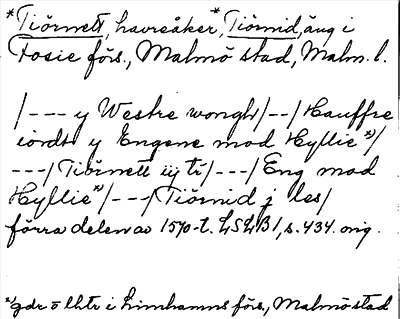 *Tiörnett, havreåker, *Tiörnid, äng i
Fosie förs., Malmö stad, Malm. l.
/--- y Westre wongh/--/Hauffre
iordt y Engene mod Hyllie x)/
---/Tiörnett iij ti/---/Eng mod
Hyllie x)/---/Tiörnid j les/
förra delen av 1570-t. LSLB1, s. 434. orig.
x) gdr o lhtr i Limhamns förs., Malmö stad